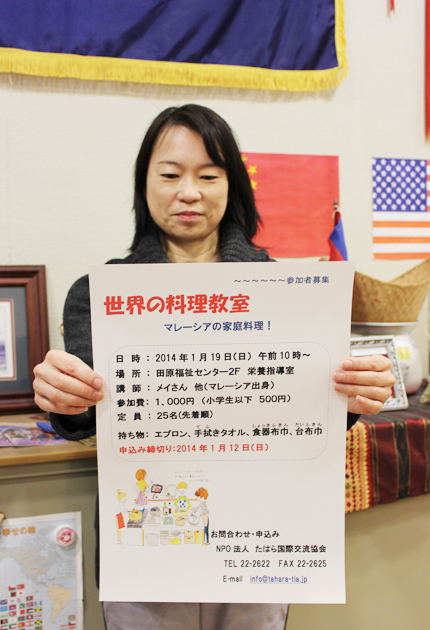 ～～～～～～参加者募集
世界の料理教室
マレーシアの家庭料理！
日 時： 2014年1月19日(日) 午前10時～
場 所： 田原福祉センター2F 栄養指導室
講 師： メイさん 他(マレーシア出身)
参加費： 1,000円 (小学生以下 500円)
定 員： 25名(先着順)
持ち物： エプロン、手拭きタオル、食器布巾、台布巾
申込み締切り：2014年1月12日(日)
お問合わせ・申込み
NPO法人 たはら国際交流協会
TEL 22-2622 FAX 22-2625
E-mail info@tahara-tia.jp